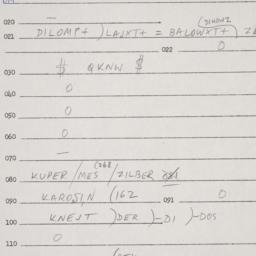 020 —
(DIHONZ
021 DILOMP+ )LAJXT+ = BALOWXT+)
022 0
$ QKNW $
030
0
040
0
050
0
060
—
070
(268
080 KUPER/MES/ZILBER
KAROSIN (162 091 0
090
KNEJT )DER )-DI )-DOS
100
0
110